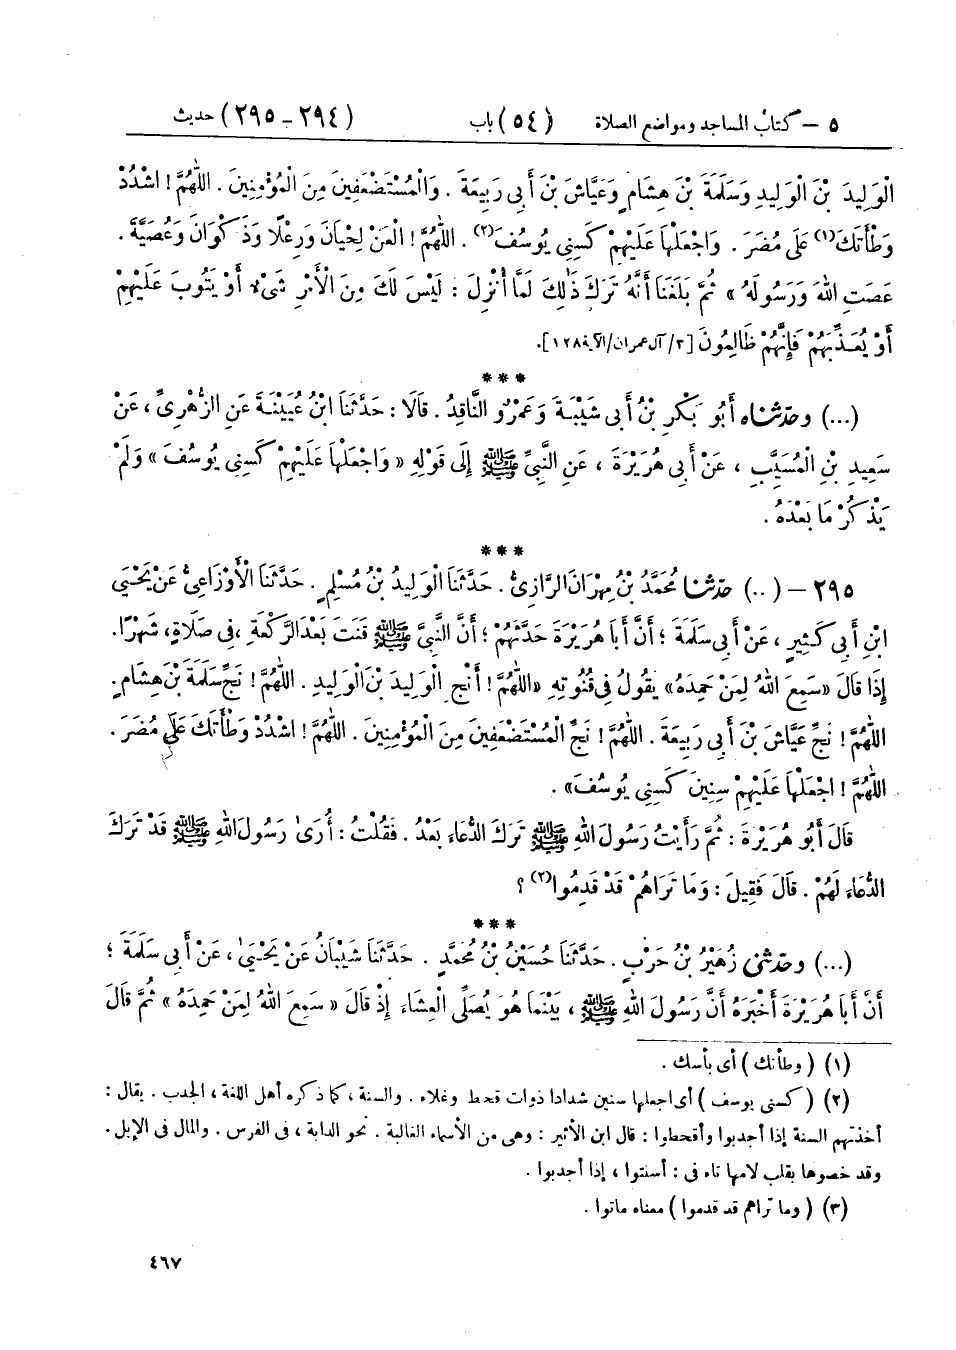 ٥ – كتاب المساجد ومواضع الصلاة (٥٤) باب (٢٩٤ – ٢٩٥) حديث
الْوَلِيدَ بْنَ الْوَلِيدِ وَسَلَمَةَ بْنَ هِشَامٍ وَعَيَّاشَ بْنَ أَبِي رَبِيعَةَ . وَالْمُسْتَضْعَفِينَ مِنَ الْمُؤْمِنِينَ . اللَّهُمَّ ! اشْدُدْ
وَطْأَتَكَ(١) عَلَى مُضَرَ . وَاجْعَلْهَا عَلَيْهِمْ كَسِنِي يُوسُفَ(٢) . اللَّهُمَّ ! الْعَنْ لِحْيَانَ وَرِعْلًا وَذَكْوَانَ وَعُصَيَّةَ .
عَصَتِ اللهَ وَرَسُولَهُ » ثُمَّ بَلَغَنَا أَنَّهُ تَرَكَ ذَٰلِكَ لَمَّا أُنْزِلَ : لَيْسَ لَكَ مِنَ الْأَمْرِ شَيْءٌ أَوْ يَتُوبَ عَلَيْهِمْ
أَوْ يُعَذِّبَهُمْ فَإِنَّهُمْ ظَالِمُونَ [٣/آل عمران/الآية ١٢٨].
***
(...) وحدثناه أَبُو بَكْرِ بْنُ أَبِي شَيْبَةَ وَعَمْرٌو النَّاقِدُ . قَالَا : حَدَّثَنَا ابْنُ عُيَيْنَةَ عَنِ الزُّهْرِيِّ ، عَنْ
سَعِيدِ بْنِ الْمُسَيَّبِ ، عَنْ أَبِي هُرَيْرَةَ ، عَنِ النَّبِيِّ ﷺ إِلَى قَوْلِهِ « وَاجْعَلْهَا عَلَيْهِمْ كَسِنِي يُوسُفَ » وَلَمْ
يَذْكُرْ مَا بَعْدَهُ .
***
٢٩٥ – (...) حدثنا مُحَمَّدُ بْنُ مِهْرَانَ الرَّازِيُّ . حَدَّثَنَا الْوَلِيدُ بْنُ مُسْلِمٍ . حَدَّثَنَا الْأَوْزَاعِيُّ عَنْ يَحْيَى
ابْنِ أَبِي كَثِيرٍ ، عَنْ أَبِي سَلَمَةَ ؛ أَنَّ أَبَا هُرَيْرَةَ حَدَّثَهُمْ ؛ أَنَّ النَّبِيَّ ﷺ قَنَتَ بَعْدَ الرَّكْعَةِ ، فِي صَلَاةٍ ، شَهْرًا.
إِذَا قَالَ «سَمِعَ اللهُ لِمَنْ حَمِدَهُ» يَقُولُ فِي قُنُوتِهِ «اللَّهُمَّ ! أَنْجِ الْوَلِيدَ بْنَ الْوَلِيدِ . اللَّهُمَّ ! نَجِّ سَلَمَةَ بْنَ هِشَامٍ.
اللَّهُمَّ ! نَجِّ عَيَّاشَ بْنَ أَبِي رَبِيعَةَ . اللَّهُمَّ ! نَجِّ الْمُسْتَضْعَفِينَ مِنَ الْمُؤْمِنِينَ . اللَّهُمَّ ! اشْدُدْ وَطْأَتَكَ عَلَى مُضَرَ .
اللَّهُمَّ ! اجْعَلْهَا عَلَيْهِمْ سِنِينَ كَسِنِي يُوسُفَ» .
قَالَ أَبُو هُرَيْرَةَ : ثُمَّ رَأَيْتُ رَسُولَ اللهِ ﷺ تَرَكَ الدُّعَاءَ بَعْدُ . فَقُلْتُ : أُرَىٰ رَسُولَ اللهِ ﷺ قَدْ تَرَكَ
الدُّعَاءَ لَهُمْ . قَالَ فَقِيلَ : وَمَا تَرَاهُمْ قَدْ قَدِمُوا(٢) ؟
***
(...) وحدثني زُهَيْرُ بْنُ حَرْبٍ . حَدَّثَنَا حُسَيْنُ بْنُ مُحَمَّدٍ . حَدَّثَنَا شَيْبَانُ عَنْ يَحْيَىٰ ، عَنْ أَبِي سَلَمَةَ ؛
أَنَّ أَبَا هُرَيْرَةَ أَخْبَرَهُ أَنَّ رَسُولَ اللهِ ﷺ ، بَيْنَمَا هُوَ يُصَلِّي الْعِشَاءَ إِذْ قَالَ « سَمِعَ اللهُ لِمَنْ حَمِدَهُ » ثُمَّ قَالَ
(١) ( وطأتك ) أى بأسك .
(٢) ( كسنى يوسف ) أى اجعلها سنين شدادا ذوات قحط وغلاء . والسنة ، كما ذكره أهل اللغة ، الجدب . يقال :
أخذتهم السنة إذا أجدبوا وأقحطوا : قال ابن الأثير : وهى من الأسماء الغالبة . نحو الدابة ، فى الفرس . والمال فى الإبل .
وقد خصوها بقلب لامها تاء فى : أسنتوا ، إذا أجدبوا .
(٣) ( وما تراهم قد قدموا ) معناه ماتوا .
٤٦٧